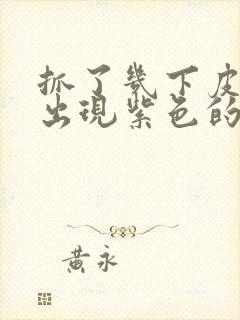 抓了幾下皮
出現紫色的
黃永